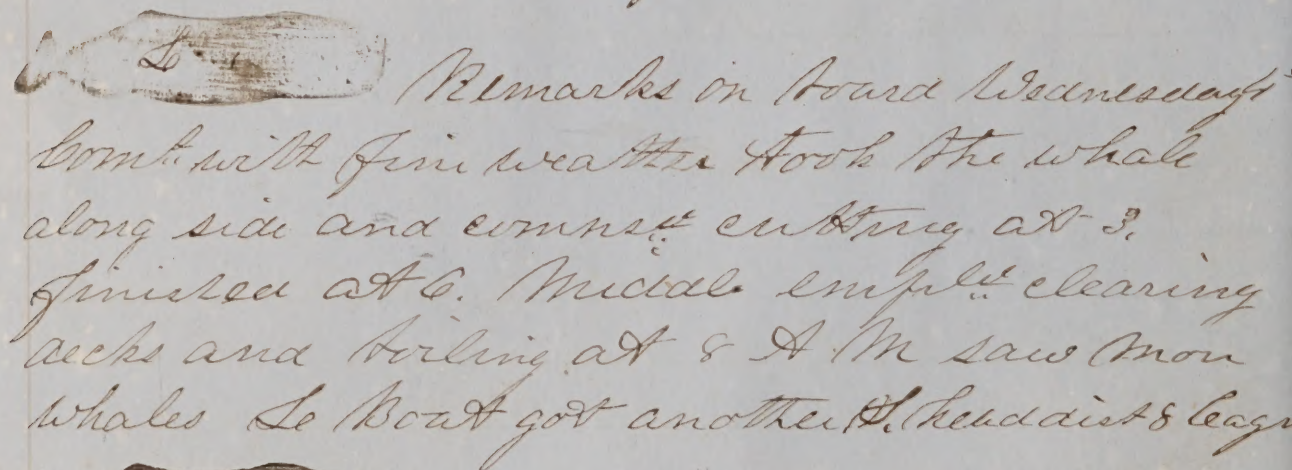 Le
Remarks on board Wednesday
Comt. with fine weather took the whale
along side and comnsd cutting at 3.
finished at 6. Middle empld clearing
decks and boiling at 8 A M saw more
whales Le Boat got another head dist 8 leag